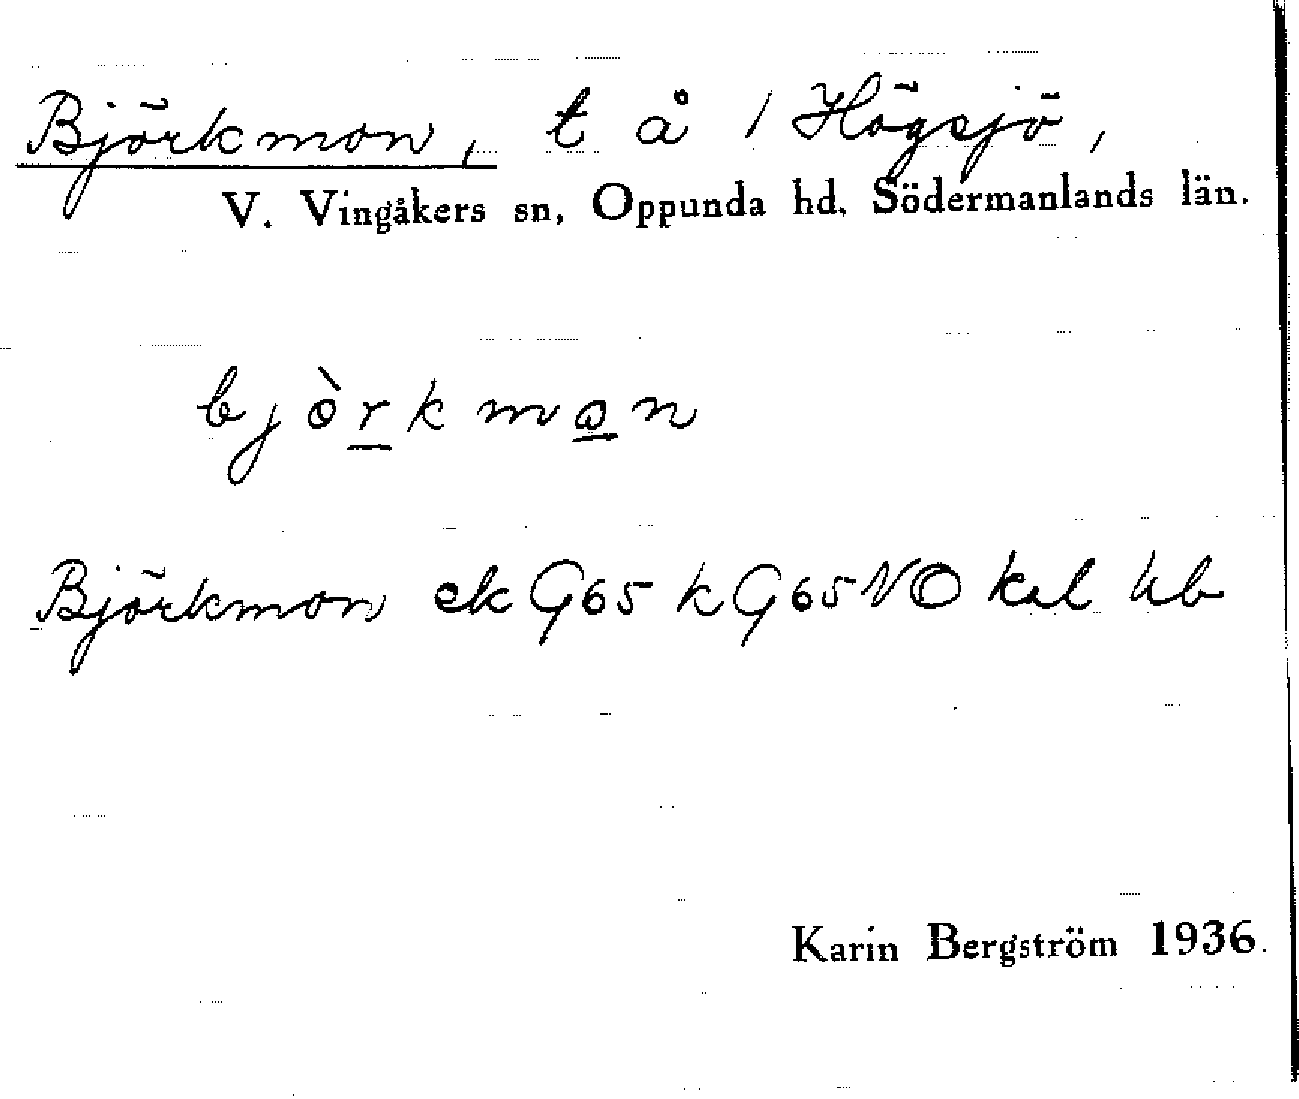 Björkmon, t å / Högsjö,
V. Vingåkers sn, Oppunda hd. Södermanlands län.
bjòrkmon
Björkmon ek G65 k G65 NO kal hb
Karin Bergström 1936.